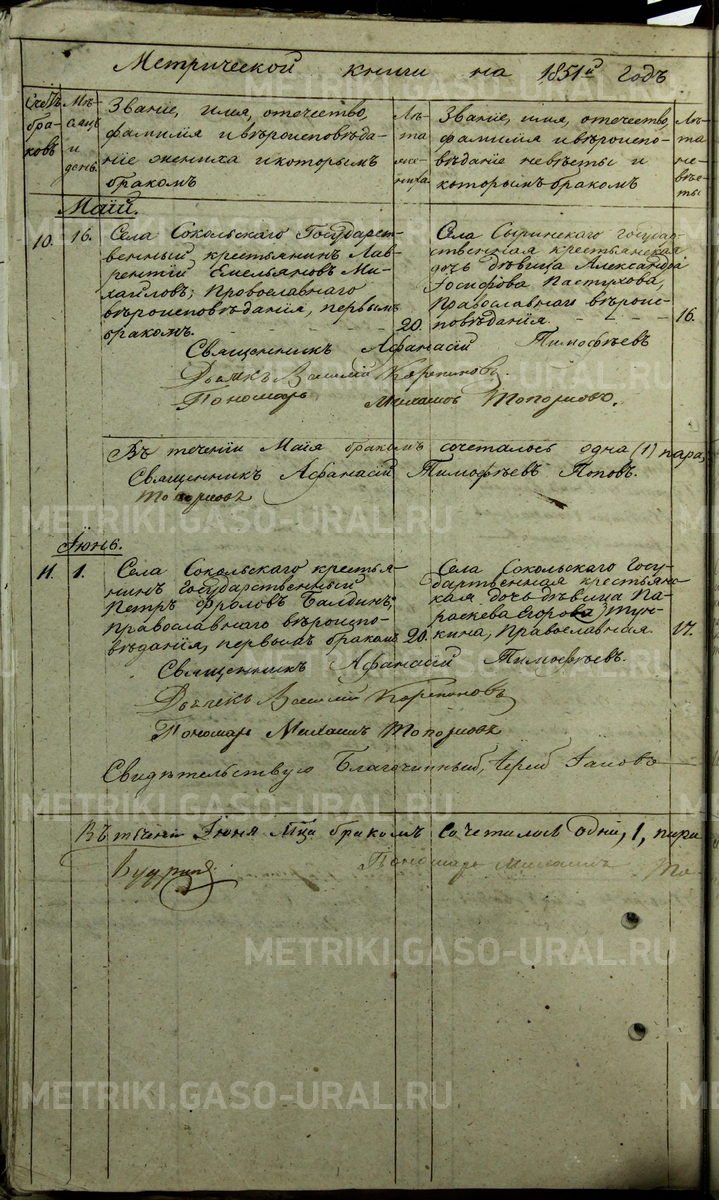 Метрической книги на 1851й годъ
Счетъ бра-ковъ
Мѣ-сяцъ и день.
Званіе, имя, отечество,
фамилія и вѣроисповѣда-
ніе жениха и которымъ
бракомъ
Лѣ-та жениха
Званіе, имя, отечество,
фамилія и вѣроиспо-
вѣданіе невѣсты и
которымъ бракомъ
Лѣ-та не-вѣс-ты
Маій.
10.
16.
Села Сокольскаго Государст-
венный крестьянинъ Лав-
рентій Емельяновъ Ми-
хайловъ; Провославнаго
вѣроисповѣданія, первымъ
бракомъ.
20.
Села Сыринскаго государ-
ственная крестьянская
дочь дѣвица Александра
Іосифова Пастухова,
Православнаго вѣроис-
повѣданія.
16.
Священникъ Афанасій Тимофѣевъ
Дьячекъ Василій
Пономарь
Въ теченіи Маія бракомъ сочеталось одна (1) пара,
Священникъ Афанасій Тимофѣевъ Поповъ.
Іюнь.
11.
1.
Села Сокольскаго крестья-
нинъ государственный
Петръ Фроловъ Балдинъ;
Православнаго вѣроиспо-
вѣданія, первымъ бракомъ
20.
Села Сокольскаго Госу-
дарственная крестьянс-
кая дочь дѣвица Па-
раскева Егорова Тун-
кина, Православная.
17.
Священникъ Афанасій Тимофѣевъ.
Дьячекъ Василій
Пономарь Михаилъ
Свидѣтельствую Благочинный,
Въ теченіи Іюня М-ца бракомъ сочеталось одна, 1, пара
Пономарь Михаилъ То-
METRIKI.GASO-URAL.RU